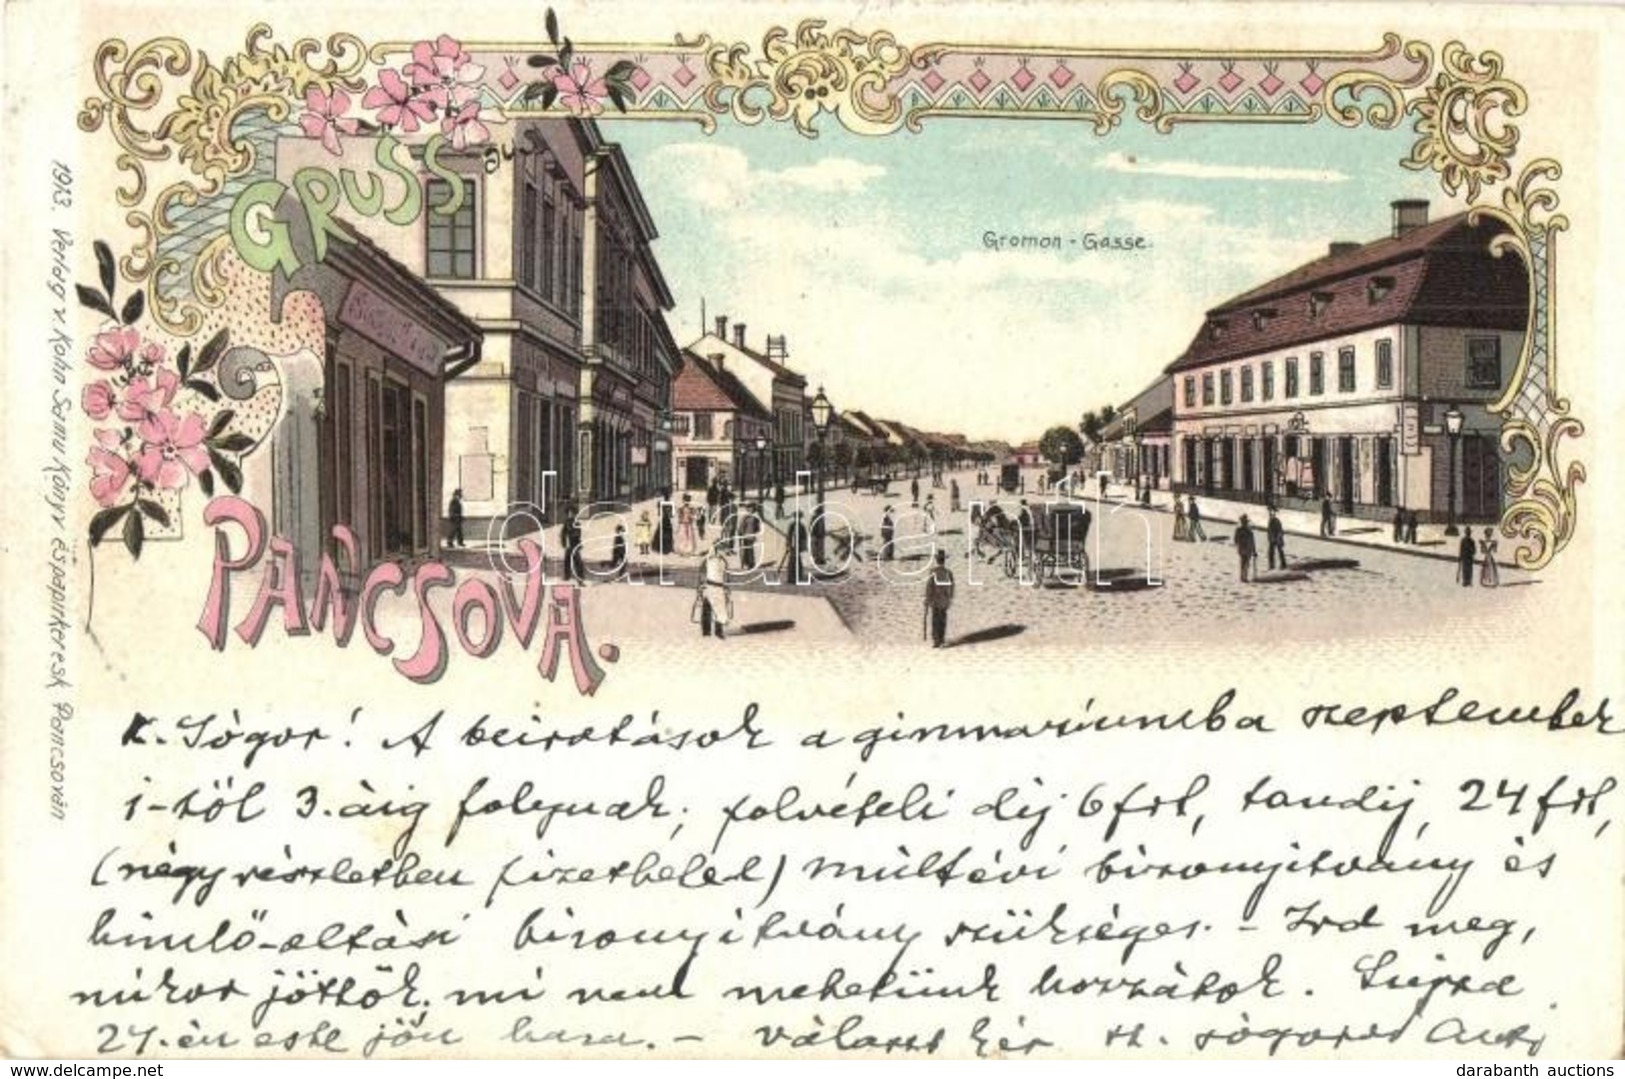 GRUSS aus
PANCSOVA.
Gromon - Gasse.
1913. Verlag v Kohn Samu Könyv és papirkeresk Pancsován
K. Sógor! A beiratások a gimnáziumba szeptember
1-től 3.áig folynak; felvételi dij 6 frt, tandij, 24 frt,
(négy részletben fizethető) multévi bizonyitvány és
himlő-oltási bizonyitvány szükséges. - Ird meg,
mikor jöttök, mi nem mehetünk hozzátok.
24.-én este jön haza. - választ kér sz. sógorod
darabanth
delcampe.net
darabanth auctions